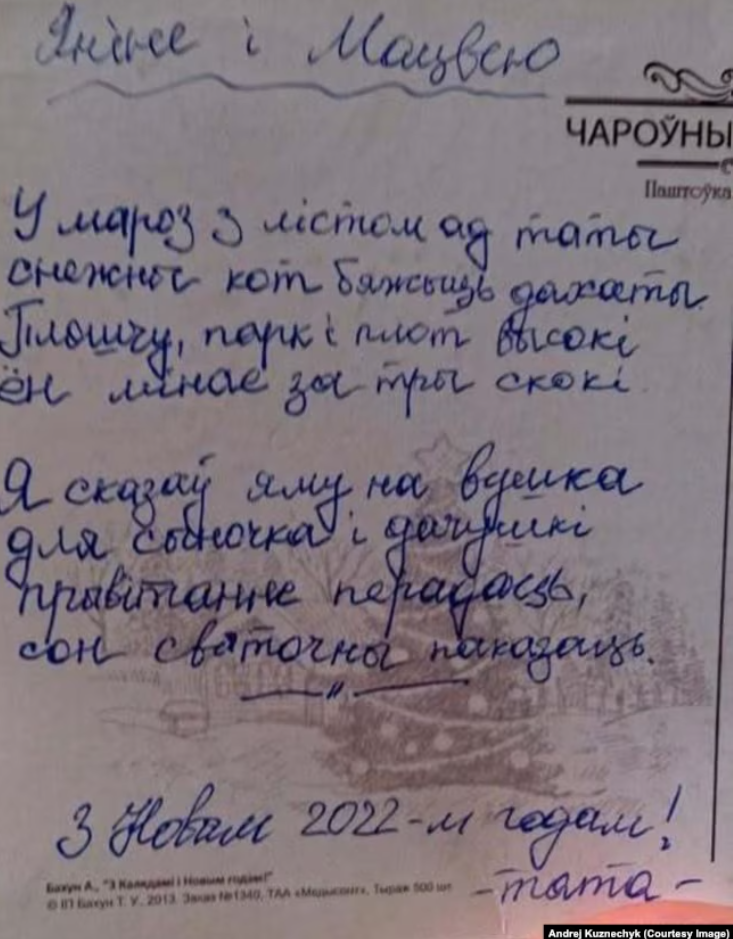 Яніне і Мацвею
ЧАРОЎНЫ
Паштоўка
У мароз з лістом ад таты
снежны кот бяжыць дахаты.
Плошчу, парк і плот высокі
ён мінае за тры скокі.
Я сказаў яму на вушка
для сыночка і дачушкі
прывітанне перадаць,
сон святочны паказаць.
З Новым 2022-м годам!
- тата -
Бахун А., "З Калядамі і Новым годам!"
© ІП Бахун Т. У., 2013. Заказ №1340, ТАА «Медысонт», Тыраж 500 шт
Andrej Kuznechyk (Courtesy Image)